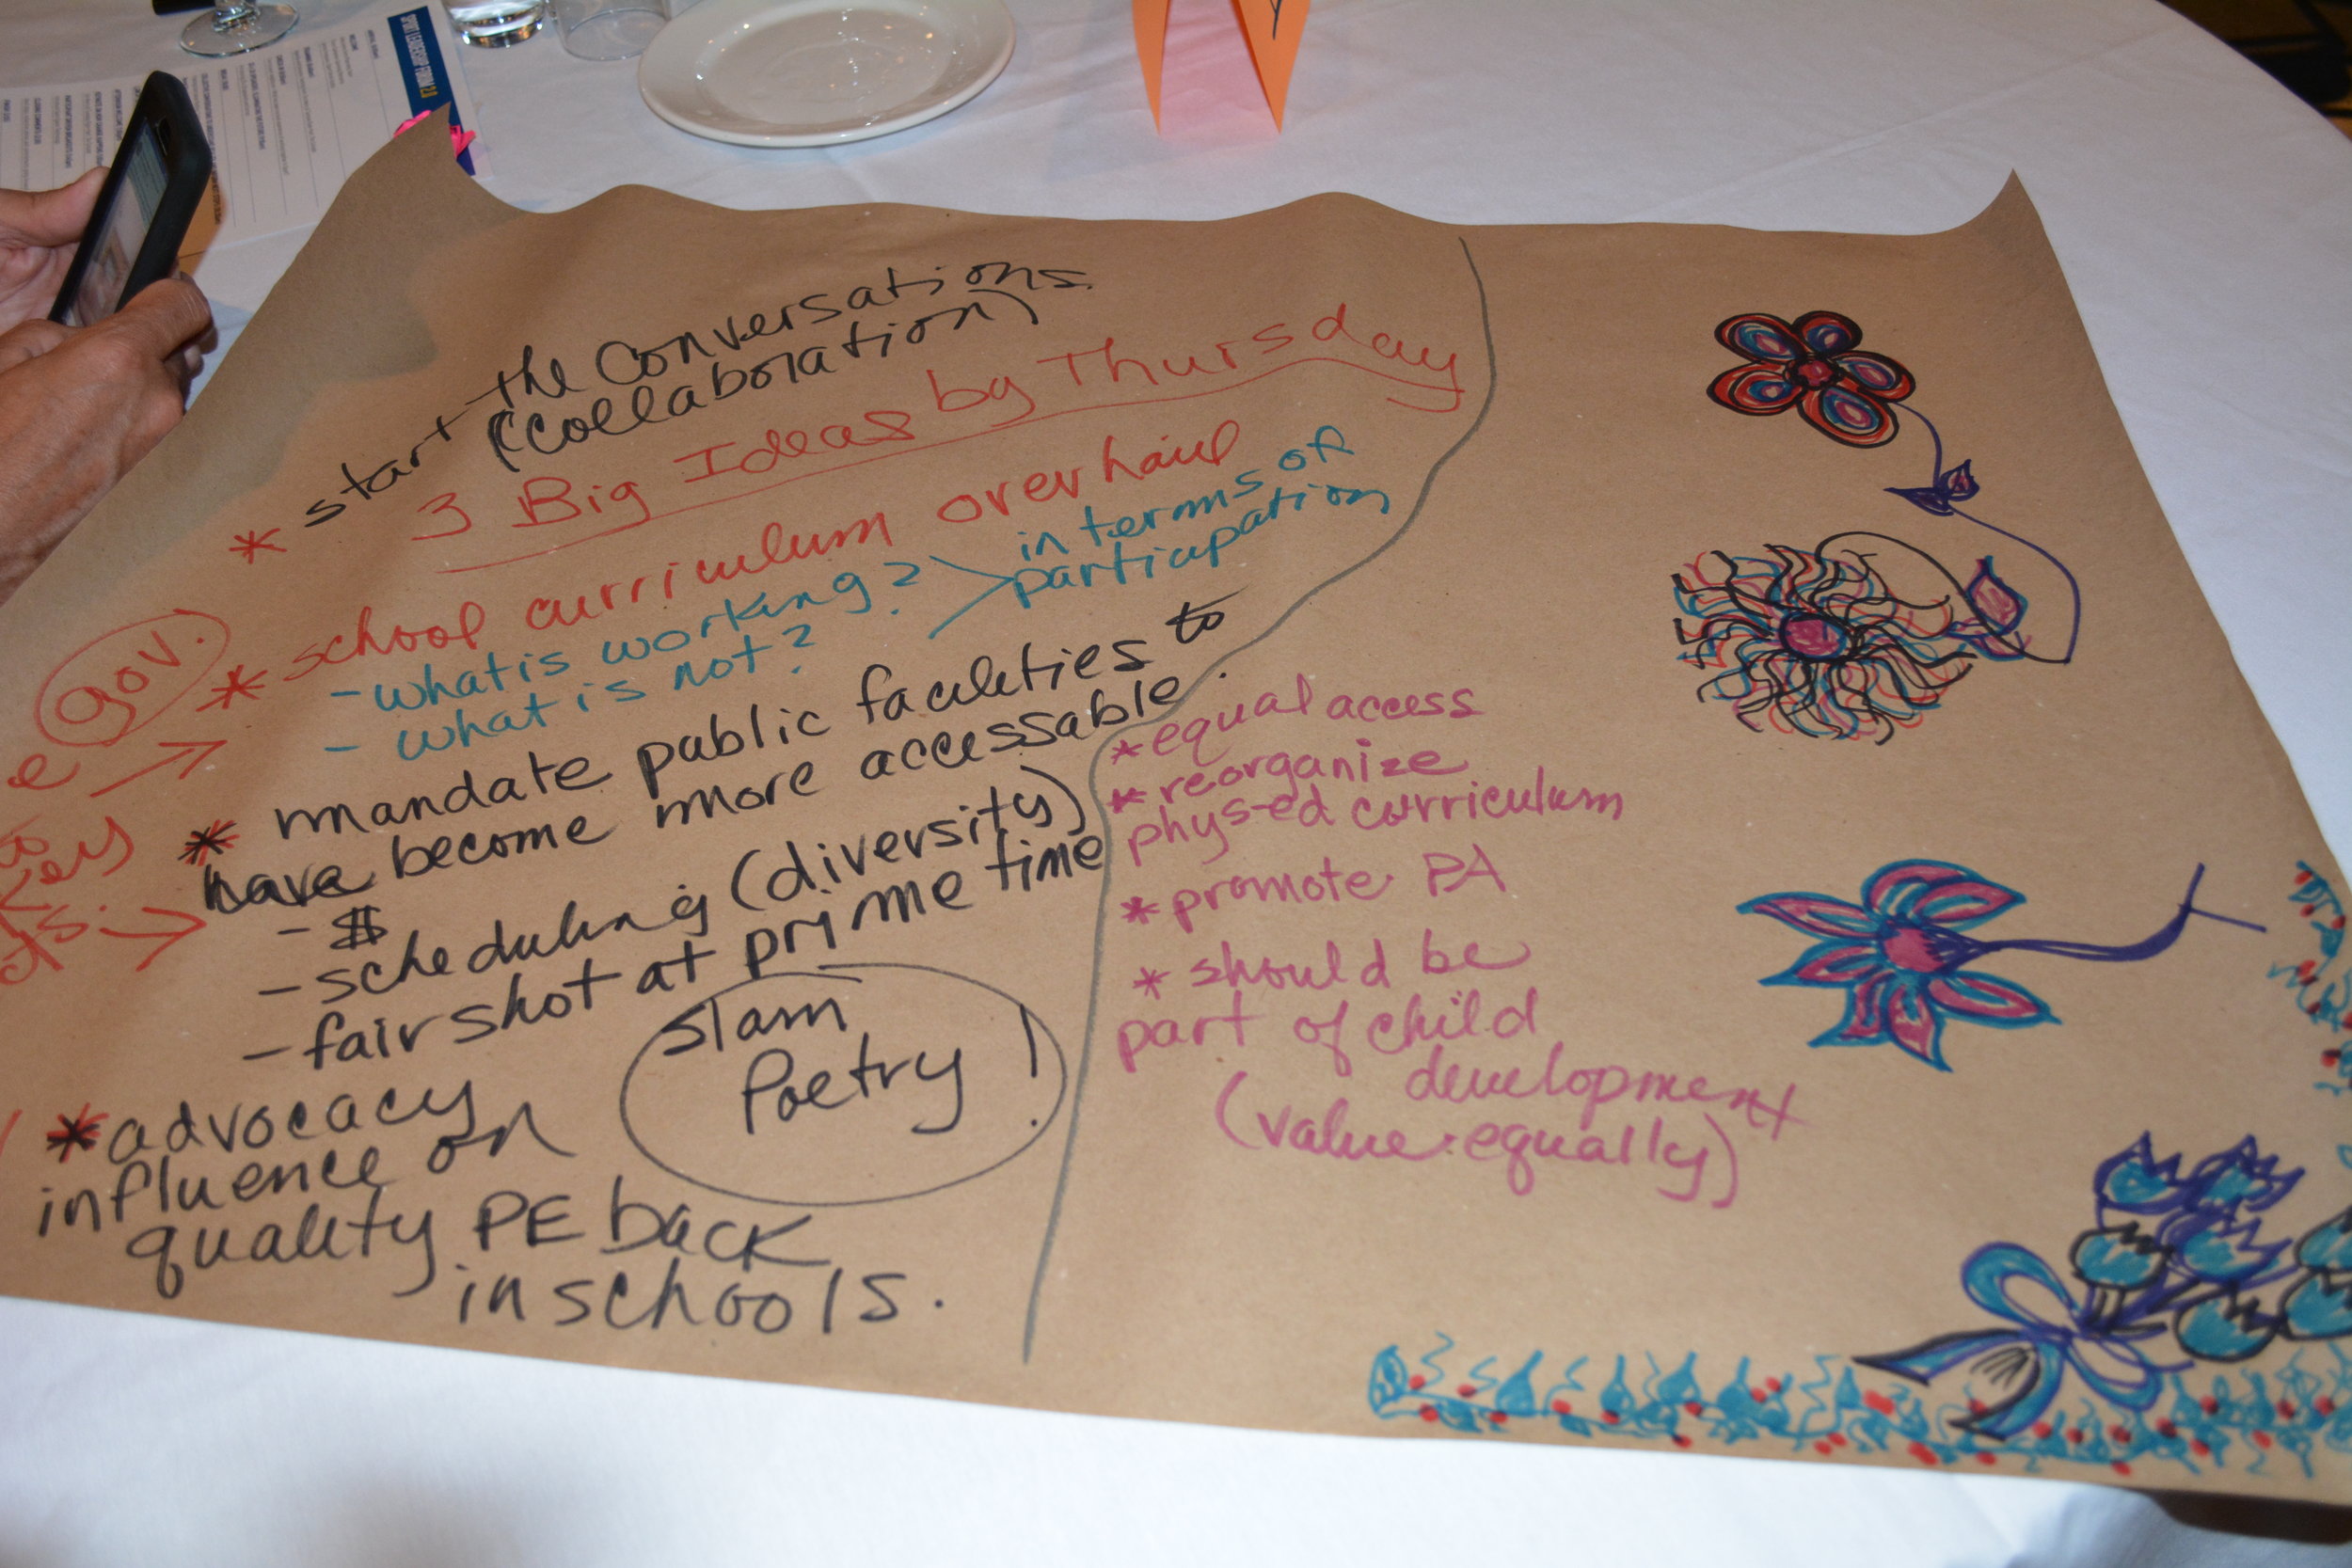 SPORT LEADERSHIP FORUM 2.0
* start the Conversations.
(collaboration)
3 Big Ideas by Thursday
gov.
* school curriculum overhaul
- what is working?
- what is not?
in terms of
participation
* mandate public facilities to
have become more accessable.
- $
- scheduling (diversity)
- fair shot at prime time
Slam
Poetry!
* advocacy
influence on
quality PE back
in schools.
* equal access
* reorganize
phys-ed curriculum
* promote PA
* should be
part of child
development
(value equally)